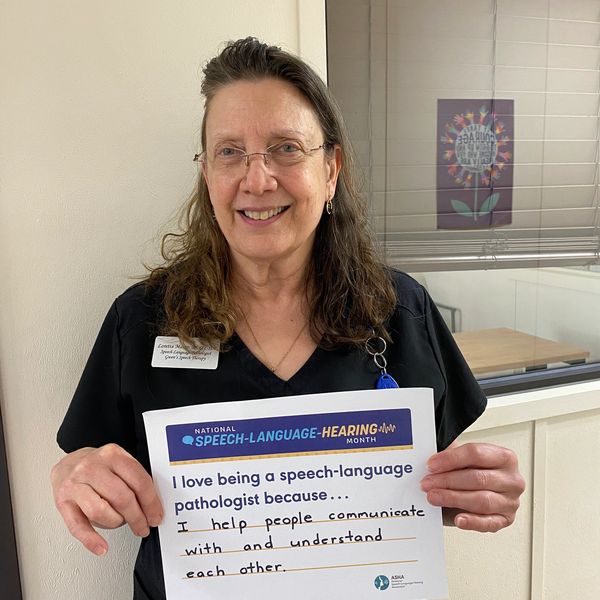 COURAGE
Loretta
Speech-Language Pathologist
Green's Speech Therapy
NATIONAL
SPEECH-LANGUAGE-HEARING
MONTH
I love being a speech-language
pathologist because...
I help people communicate
with and understand
each other.
ASHA
American
Speech-Language-Hearing
Association